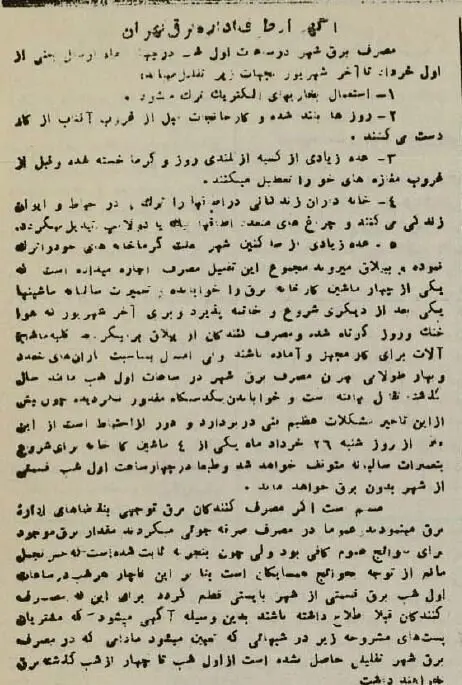 آگهی از طرف اداره برق تهران
مصرف برق شهر در ساعات اول شب در چهار ماه اول سال یعنی از
اول خرداد تا آخر شهریور بجهات زیر تقلیل میابد:
۱- استعمال بخاریهای الکتریک ترک میشود.
۲- روز ها بلند شده و کارخانجات قبل از غروب آفتاب از کار
دست می کشند.
۳- عده زیادی از کسبه از بلندی روز و گرما خسته شده و قبل از
غروب مغازه های خود را تعطیل میکنند.
۴- خانه داران زندگانی در اطاقها را ترک و در حیاط و ایوان
زندگی می کنند و چراغ های متعدد اطاقها بیک یا دو لامپ تبدیل میگردد.
۵- عده زیادی از ساکنین شهر بعلت گرما خانه های خود را ترک
نموده و به ییلاق میروند مجموع این تقلیل مصرف اجازه میداده است که
یکی از چهار ماشین کارخانه برق را خوابانده و تعمیرات سالیانه ماشینها
یکی بعد از دیگری شروع و خاتمه پذیرد و برای آخر شهریور که هوا
خنک و روز کوتاه شده و مصرف کنندگان از ییلاق بر میگردند کلیه ماشین
آلات برای کار مجهز و آماده باشند ولی امسال بمناسبت باران‌های ممتد
و بهار طولانی تهران مصرف برق شهر در ساعات اول شب مانند سال
گذشته تقلیل نیافته است و خواباندن یکدستگاه مقدور نگردیده چون بیش
از این تاخیر مشکلات عظیم فنی در بر دارد و دور از احتیاط است از این
از روز شنبه ۲۶ خرداد ماه یکی از ۴ ماشین کارخانه برای شروع
بتعمیرات سالیانه متوقف خواهد شد و طبعا در چهار ساعت اول شب قسمتی
از شهر بدون برق خواهد ماند.
مسلم است اگر مصرف کنندگان برق توجهی بتقاضاهای اداره
برق مینمودند و عموما در مصرف صرفه جوئی میکردند مقدار برق موجود
برای حوائج عموم کافی بود ولی چون بتجربه ثابت شده است که
مانع از توجه بحوائج همسایگان است بنا بر این ناچار هر شب در ساعات
اول شب برق قسمتی از شهر بایستی قطع گردد برای این که مصرف
کنندگان قبلا اطلاع داشته باشند بدین وسیله آگهی میشود که مشتریان
پست‌های مشروحه زیر در شبهائی که تعیین میشود مادامی که در مصرف
برق شهر تقلیلی حاصل نشده است از اول شب تا چهار از شب گذشته برق
نخواهند داشت